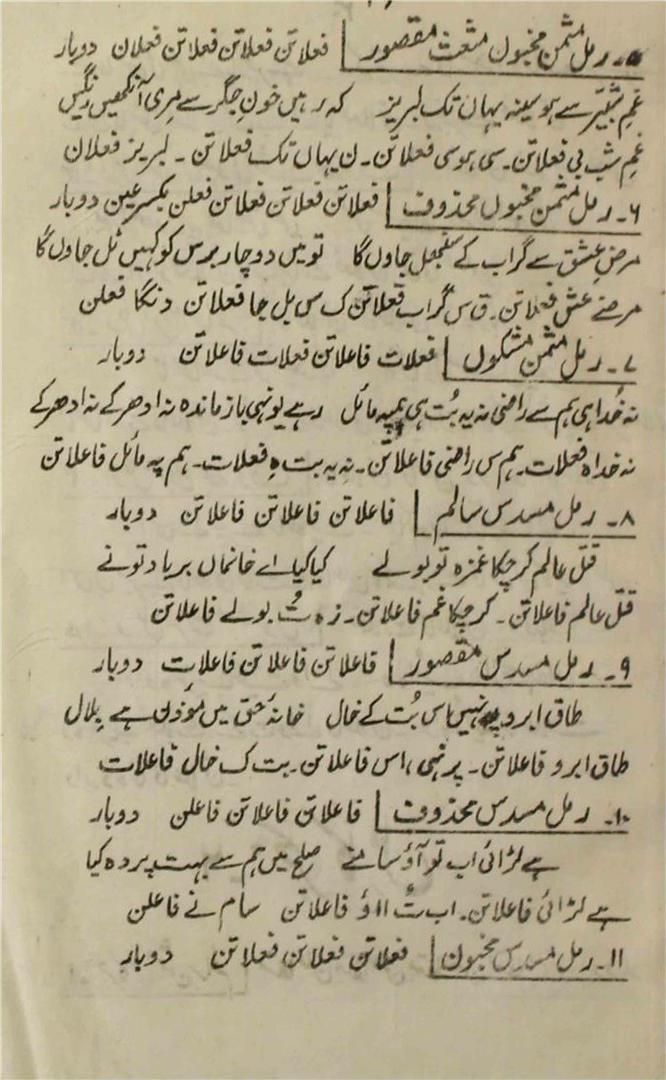 ۵۔ رمل مثمن مخبول مشعث مقصور | فعلاتن فعلاتن فعلاتن فعلان دوبار
غمِ شبیر سے ہو سینہ یہاں تک لبریز کہ رہیں خونِ جگر سے مِری آنکھیں رنگیں
غمِ شب بی فعلاتن۔ سی ہو سی فعلاتن۔ ن یہاں تک فعلاتن۔ لبریز فعلان
۶۔ رمل مثمن مخبول محذوف | فعلاتن فعلاتن فعلاتن فعلن بکسر عین دوبار
مرضِ عشق سے گر اب کے سنبھل جاوں گا تو میں دو چار برس کو کہیں ٹل جاوں گا
مرضے عش فعلاتن۔ ق س گر اب فعلاتن ک س بل جا فعلاتن دنگا فعلن
۷۔ رمل مثمن مشکول | فعلات فاعلاتن فعلات فاعلاتن دوبار
نہ خُدا ہی ہم سے راضی نہ یہ بُت ہی ہمپہ مائل رہے یونہی باز ماندہ نہ ادھر کے نہ ادھر کے
نہ خداہ فعلات۔ ہم س راضی فاعلاتن۔ نہ یہ بت ہِ فعلات۔ ہم پہ مائل فاعلاتن
۸۔ رمل مسدس سالم | فاعلاتن فاعلاتن فاعلاتن دوبار
قتل عالم کر چکا غمزہ تو بولے کیا کیا اے خانماں برباد تو نے
قتل عالم فاعلاتن۔ کر چکا غم فاعلاتن۔ زہ تُ بولے فاعلاتن
۹۔ رمل مسدس مقصور | فاعلاتن فاعلاتن فاعلات دوبار
طاق ابرو پہ نہیں اس بُت کے خال خانۂ حق میں موذن ہے بلال
طاق ابرو فاعلاتن۔ پر نہی، اس فاعلاتن۔ بت ک خال فاعلات
۱۰۔ رمل مسدس محذوف | فاعلاتن فاعلاتن فاعلن دوبار
ہے لڑائی اب تو آؤ سامنے صلح میں ہم سے بہت پردہ کیا
ہے لڑائی فاعلاتن۔ اب تُ ااؤ فاعلاتن سام نے فاعلن
۱۱۔ رمل مسدس مخبون | فعلاتن فعلاتن فعلاتن دوبار